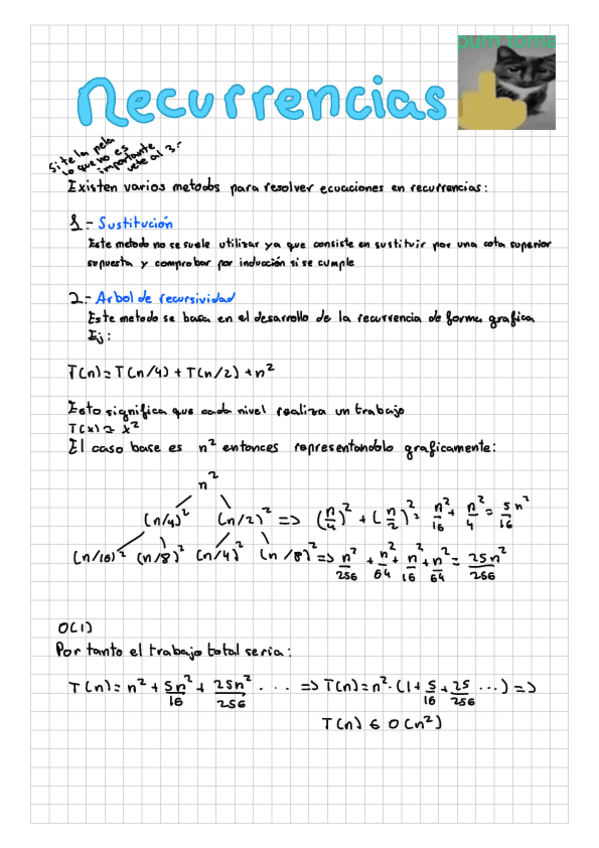 Recurrencias
pum toma
Si te la pela
lo que no es
importante
vete al 3.-
Existen varios metodos para resolver ecuaciones en recurrencias:
1.- Sustitución
Este metodo no se suele utilizar ya que consiste en sustituir por una cota superior
supuesta y comprobar por inducción si se cumple
2.- Arbol de recursividad
Este metodo se basa en el desarrollo de la recurrencia de forma grafica
Ej:
T(n) = T(n/4) + T(n/2) + n²
Esto significa que cada nivel realiza un trabajo
T(x) ≈ x²
El caso base es n² entonces representandolo graficamente:
n²
(n/4)² (n/2)² => (n/4)² + (n/2)² = n²/16 + n²/4 = 5n²/16
(n/16)² (n/8)² (n/4)² (n/8)² => n²/256 + n²/64 + n²/16 + n²/64 = 25n²/256
O(1)
Por tanto el trabajo total seria:
T(n) = n² + 5n²/16 + 25n²/256 ... => T(n) = n² · (1 + 5/16 + 25/256 ...) =>
T(n) ∈ O(n²)